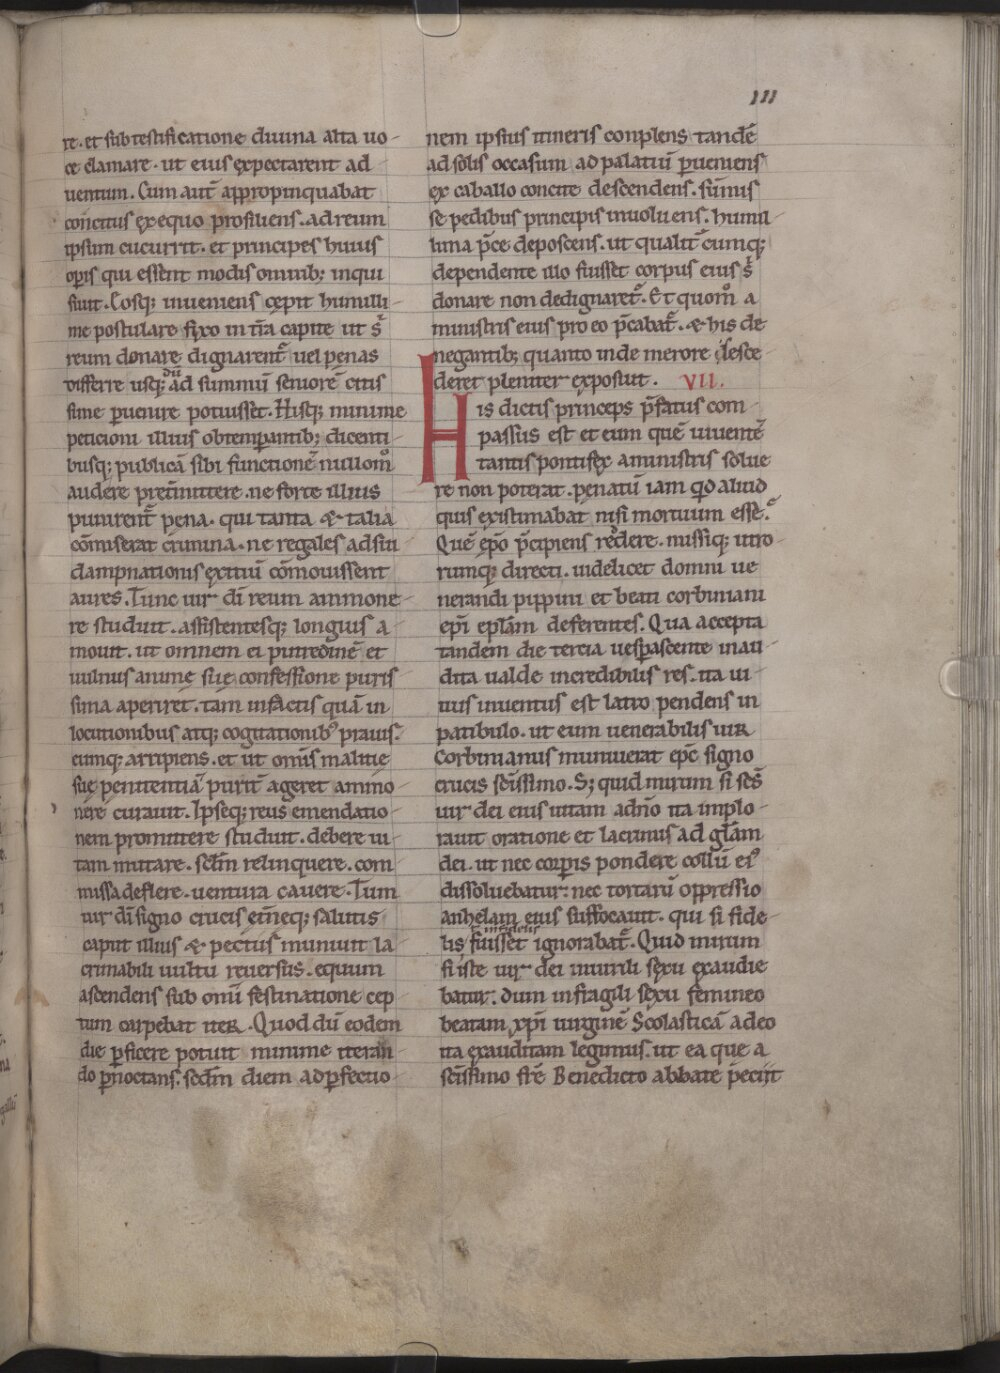 III
re. et sub testificatione diuina alta uo-
ce clamare. ut eius expectarent ad
uentum. Cum aut̄ appropinquabat
concitus ex equo prosiliens. ad reum
ipsum cucurrit. et principes huius
oꝑis qui essent modis omnib; inqui
siuit. Eosq; inueniens cępit humilli-
me postulare fixo in tr̄a capite ut s̄
reum donare dignarent᷑ uel penas
differre usq; dū ad summū seniorē citis
sime ꝑuenire potuisset. Hisq; minime
peticioni illius obtemꝑantib; dicenti-
busq; publicā sibi functionē nullom̊
audere pretm̄ittere. ne forte illius
punirent᷑ pena. qui tanta & talia
cōmiserat crimina. ne regales ad sui
dampnationis exitiū cōmouissent
aures. Tunc uir dī reum ammone-
re studuit. assistentesq; longius a-
mouit. ut omnem ei putredinē et
uulnus animę suę confessione puris
sima aperiret. tam in factis quā in
locutionibus atq; cogitationibꝰ prauis.
eumq; arripiens. et ut omīs malitię
suę penitentiā puritᷓ ageret ammo-
nere curauit. Ipseq; reus emendatio-
nem promittere studuit. debere ui-
tam mutare. sc̄lm relinquere. com-
missa deflere. uentura cauere. Tum
uir dī signo crucis eīneq; salutis
caput illius & pectus muniuit la-
crimabili uultu reuersus. equum
ascendens sub omī festinatione cep-
tum carpebat iter. Quod dū eodem
die ꝑficere potuit minime iteran-
do ꝑnoctans. sc̄dm diem ad ꝑfectio-
nem ipsius itineris conplens tandē
ad solis occasum ad palatiū ꝑueniens
ex caballo concite descendens. sūmis
se pedibus principis inuoluens. humil-
lima p̄ce deposcens. ut qualit᷑ cumq;
dependente illo fuisset corpus eius s̄
donare non dedignaret᷑. Et quom̊ a
ministris eius pro eo p̄cabat᷑. & his de
negantib; quanto inde merore desce-
deret pleniter exposuit. VII.
His dictis princeps p̄fatus com-
passus est et eum quē uiuentē
tantis pontifex a ministris solue
re non poterat. penatū iam qd̊ aliud
quis existimabat nisi mortuum esse.
Quē ep̄o p̄cipiens reddere. missiq; utro-
rumq; directi. uidelicet domni ue
nerandi pippini et beati corbiniani
ep̄i ep̄lam deferentes. Qua accepta
tandem die tercia uesꝑascente inau-
dita ualde incredibilis res. ita ui-
uus inuentus est latro pendens in
patibulo. ut eum uenerabilis uir
Corbinianus muniuerat ep̄c signo
crucis sc̄issimo. S; quid mirum si sc̄s
uir dei eius uitam a dn̄o ita implo-
rauit oratione et lacrimis ad gl̄am
dei. ut nec corꝑis pondere collū eiꝰ
dissoluebatur. nec tortarū oppressio
anhelam eius suffocauit. qui si fide-
lis ł infidelis fuisset ignorabat᷑. Quid mirum
si iste uir dei in uirili sexu exaudie-
batur. dum in fragili sexu femineo
beatam xp̄i uirginē Scolasticā adeo
ita exauditam legimus. ut ea que a
sc̄issimo fr̄e Benedicto abbate peciit